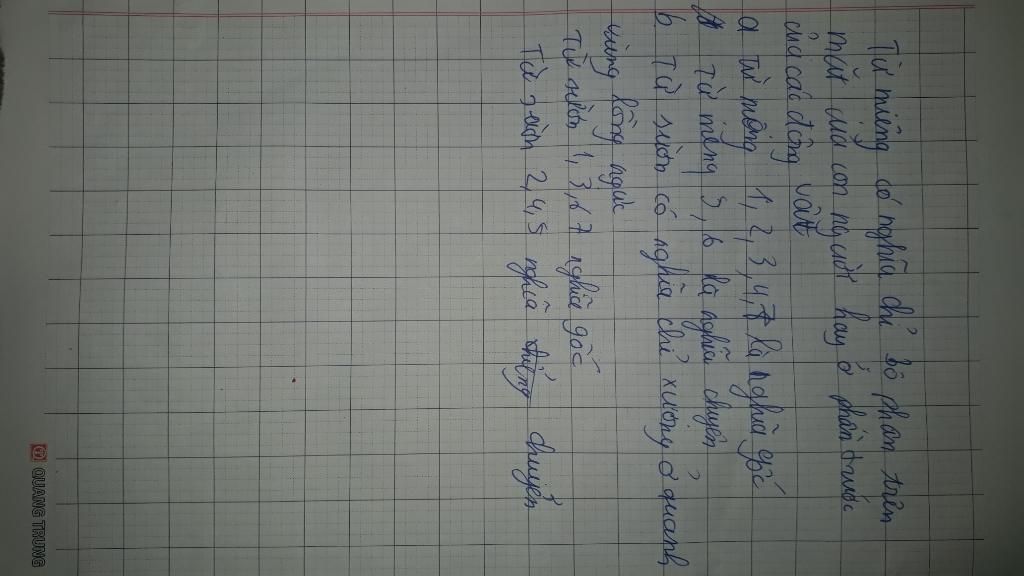 Từ miệng có nghĩa chỉ bộ phận trên
mặt của con người hay ở phần trước
của các động vật
a Từ miệng 1, 2, 3, 4, 7 là nghĩa gốc
Từ miệng 5, 6 là nghĩa chuyển
b Từ sườn có nghĩa chỉ xương ở quanh
vùng lồng ngực
Từ sườn 1, 3, 6 7 nghĩa gốc
Từ sườn 2, 4, 5 nghĩa chuyển
QUANG TRUNG